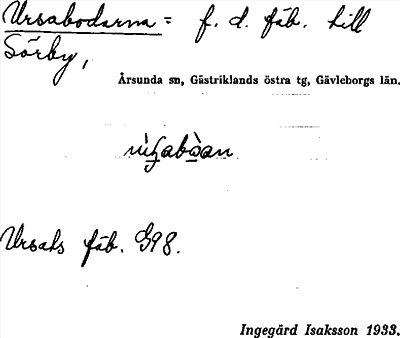 Ursabodarna = f. d. fäb. till
Sörby,
Årsunda sn, Gästriklands östra tg, Gävleborgs län.
Ursals fäb. G98.
Ingegärd Isaksson 1933.